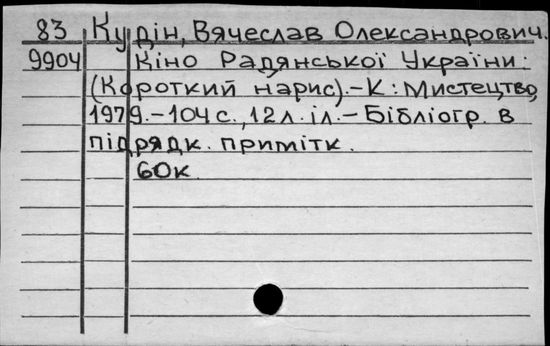 83 Кудін, Вячеслав Олександрович.
9904 Кіно Радянської України:
(Короткий нарис).-К: Мистецтво,
1979.-104с., 12л. іл.-Бібліогр. в
підрядк. примітк.
60к.